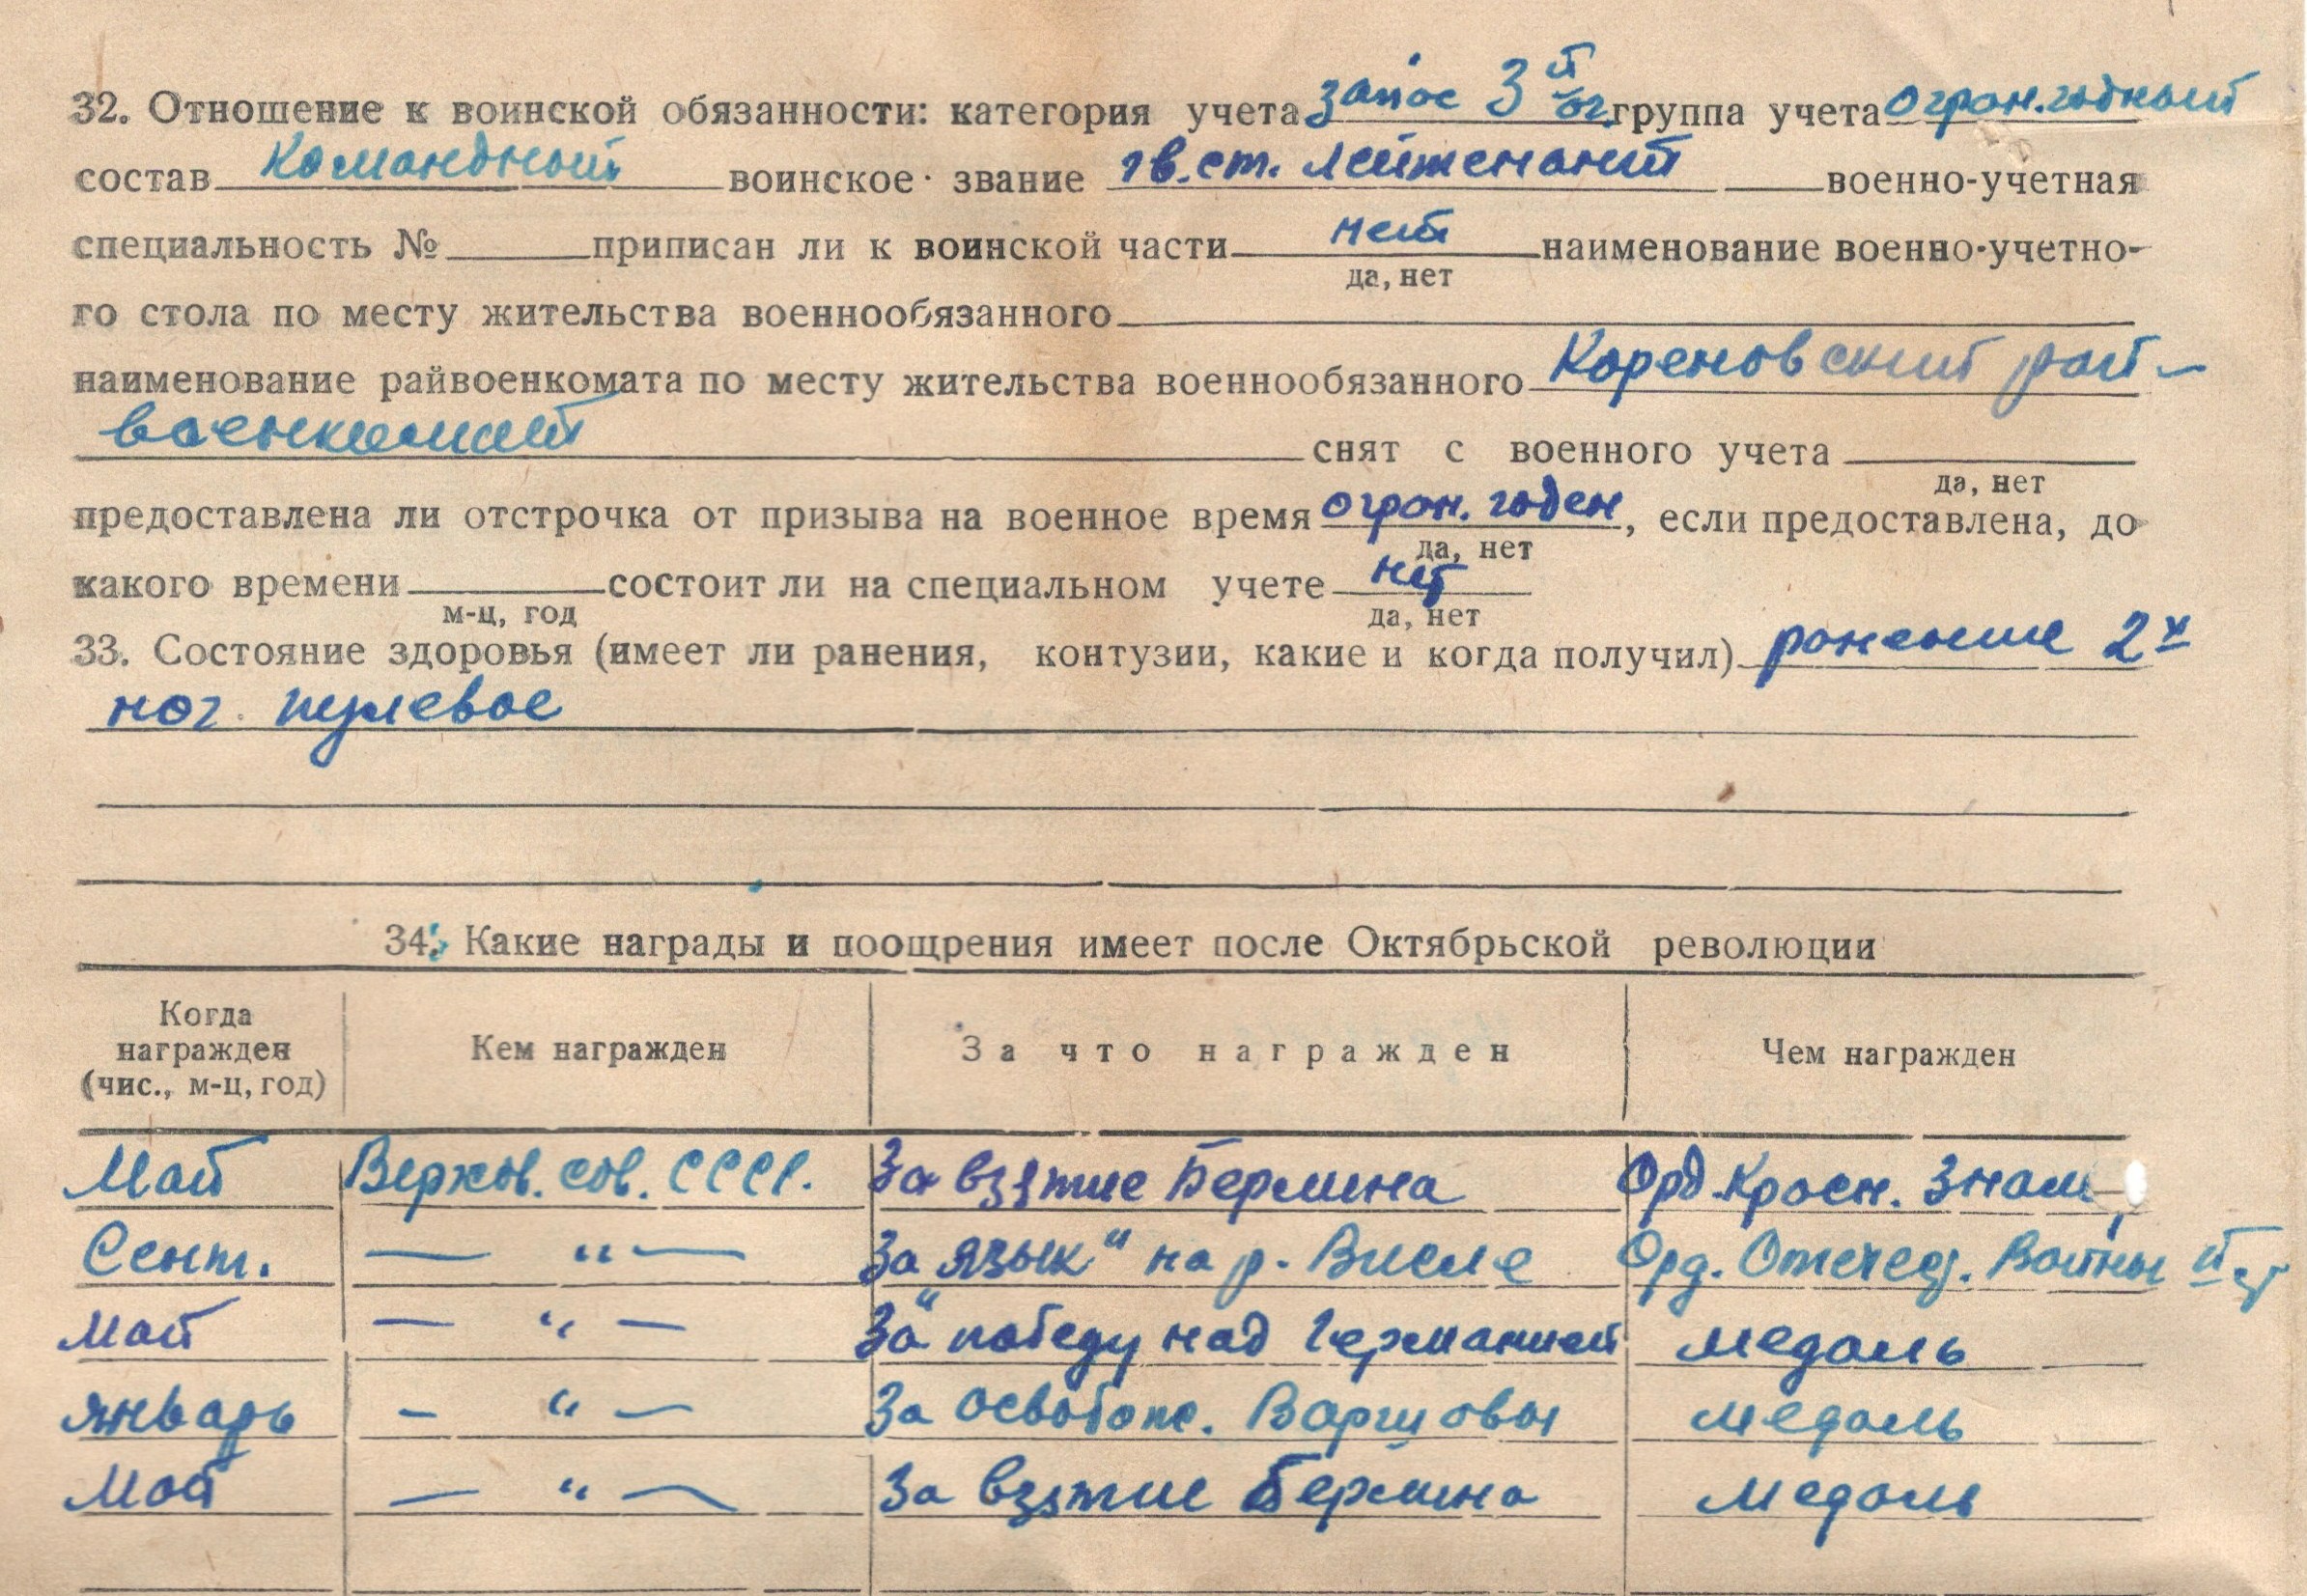 32. Отношение к воинской обязанности: категория учета запас 3й ог. группа учета огран.годный
состав Командный воинское звание гв.ст. лейтенант военно-учетная
специальность № приписан ли к воинской части нет наименование военно-учетно-
да, нет
го стола по месту жительства военнообязанного
наименование райвоенкомата по месту жительства военнообязанного Кореновский рай-
военкомат снят с военного учета
да, нет
предоставлена ли отстрочка от призыва на военное время огран. годен, если предоставлена, до
да, нет
какого времени состоит ли на специальном учете нет
м-ц, год да, нет
33. Состояние здоровья (имеет ли ранения, контузии, какие и когда получил) ранение 2х
ног. пулевое
34. Какие награды и поощрения имеет после Октябрьской революции
Когда награжден (чис., м-ц, год) Кем награжден За что награжден Чем награжден
Май Верхов. сов. СССР. За взятие Берлина Орд. Красн. Знам
Сент. — " — За "язык" на р. Висле Орд. Отечест. Войны II ст
Май — " — За "победу над Германией медаль
январь — " — За освобожд. Варшавы медаль
Май — " — За взятие Берлина медаль